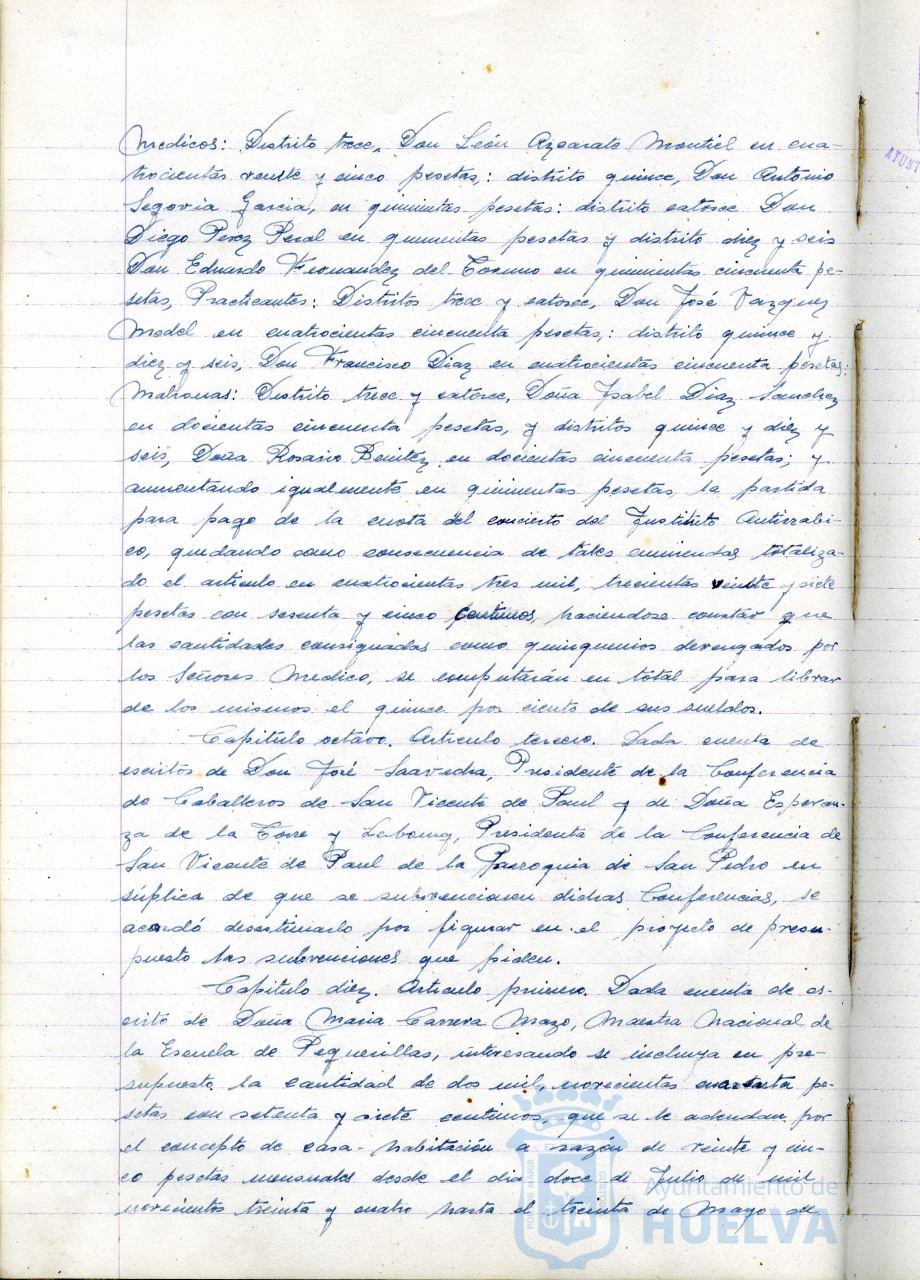 Medicos: Distrito trece, Don León Azcarate Montiel en cua-
trocientas veinte y cinco pesetas,: distrito quince, Don Antonio
Segovia Garcia, en quinientas pesetas: distrito catorce Don
Diego Perez Peral en quinientas pesetas y distrito diez y seis
Don Eduardo Fernandez del Torno en quinientas cincuenta pe-
setas, Practicantes: Distritos trece y catorce, Don José Vazquez
Medel en cuatrocientas cincuenta pesetas,: distrito quince y
diez y seis, Don Francisco Diaz en cuatrocientas cincuenta pesetas:
Matronas: Distrito trece y catorce, Doña Isabel Diaz Sanchez
en docientas cincuenta pesetas, y distritos quince y diez y
seis, Doña Rosario Benitez en docientas cincuenta pesetas; y
aumentando igualmente en quinientas pesetas la partida
para pago de la cuota del concierto del Instituto Antirrabi-
co, quedando como consecuencia de tales enmiendas totaliza-
do el articulo en cuatrocientas tres mil, trecientas veinte y siete
pesetas con sesenta y cinco centimos, haciendose constar que
las cantidades consignadas como quinquenios devengados por
los Señores Medico, se computarán en total para librar
de los mismos el quince por ciento de sus sueldos.
Capitulo octavo. Articulo tercero. Dada cuenta de
escritos de Don José Saavedra, Presidente de la Conferencia
de Caballeros de San Vicente de Paul y de Doña Esperan-
za de la Torre y, Presidenta de la Conferencia de
San Vicente de Paul de la Parroquia de San Pedro en
súplica de que se subvencionen dichas Conferencias, se
acordó desestimarlo por figurar en el proyecto de presu-
puesto las subvenciones que piden.
Capitulo diez. Articulo primero. Dada cuenta de es-
crito de Doña Maria Carrera Mazo, Maestra Nacional de
la Escuela de Pequeñillas, interesando se incluya en pre-
supuesto la cantidad de dos mil, novecientas cuarenta pe-
setas con setenta y siete centimos, que se le adeudan por
el concepto de casa-habitación a razón de veinte y cin-
co pesetas mensuales desde el dia doce de Julio de mil
novecientos treinta y cuatro hasta el treinta de Mayo de
AYUNT
Ayuntamiento de
HUELVA